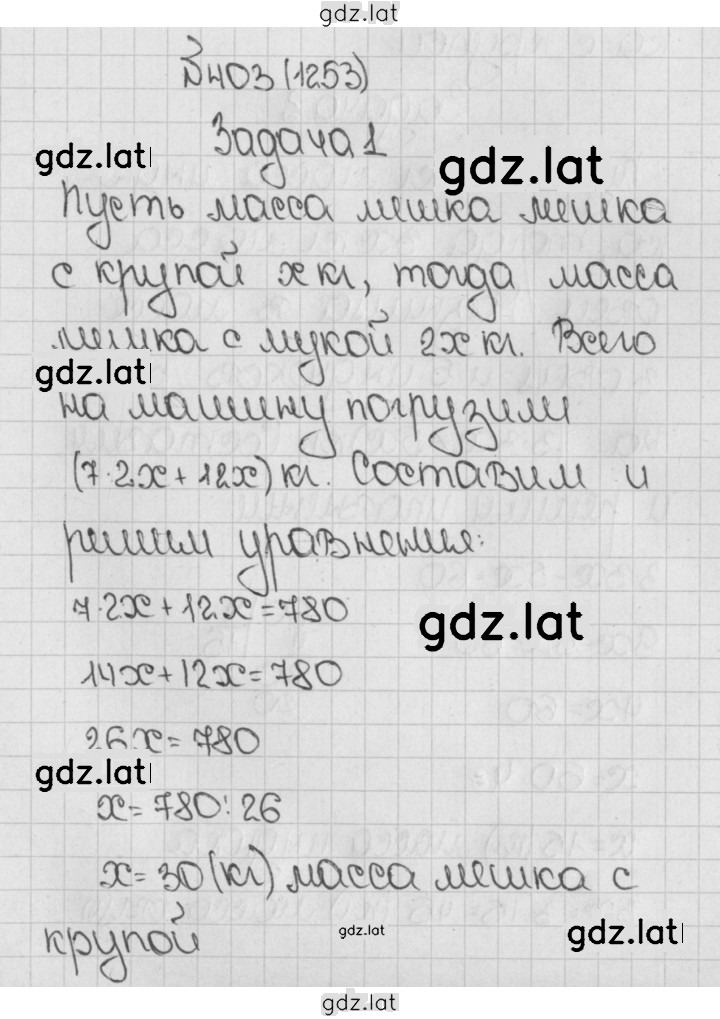 gdz.lat
№403 (1253)
Задача 1
gdz.lat
gdz.lat
Пусть масса мешка мешка
с крупой x кг, тогда масса
мешка с мукой 2x кг. Всего
gdz.lat
на машину погрузили
(7·2x + 12x) кг. Составим и
решим уравнения:
7·2x + 12x = 780
gdz.lat
14x + 12x = 780
26x = 780
gdz.lat
x = 780 : 26
x = 30 (кг) масса мешка с
крупой
gdz.lat
gdz.lat
gdz.lat